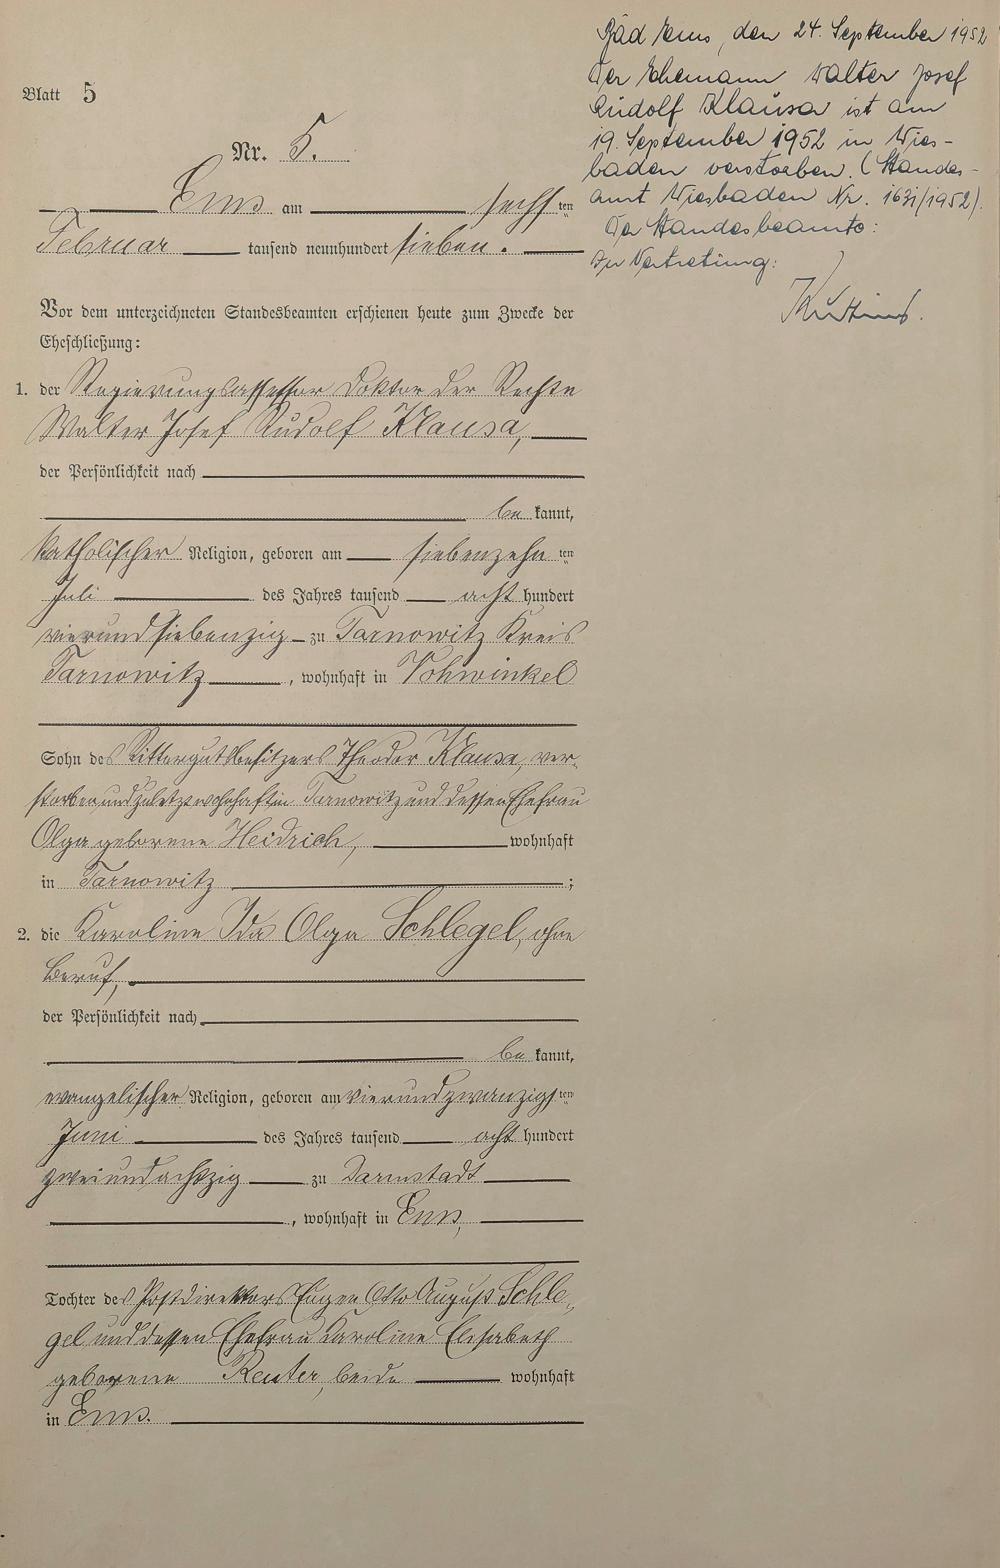 Blatt 5
Nr. 5.
Ems am sechsten
Februar tausend neunhundert sieben.
Vor dem unterzeichneten Standesbeamten erschienen heute zum Zwecke der
Eheschließung:
1. der Regierungsassessor Doktor der Rechte
Walter Josef Rudolf Klausa,
der Persönlichkeit nach
be kannt,
katholischer Religion, geboren am siebenzehnten
Juli des Jahres tausend acht hundert
vierundsiebenzig zu Tarnowitz Kreis
Tarnowitz, wohnhaft in Vohwinkel
Sohn des Rittergutsbesitzers Theodor Klausa, ver-
storben und zuletzt wohnhaft in Tarnowitz und dessen Ehefrau
Olga geborene Heidrich, wohnhaft
in Tarnowitz ;
2. die Karoline Ida Olga Schlegel, ohne
Beruf,
der Persönlichkeit nach
be kannt,
evangelischer Religion, geboren am vierundzwanzigsten
Juni des Jahres tausend acht hundert
zweiundachtzig zu Darmstadt
, wohnhaft in Ems,
Tochter des Postdirektors Eugen Otto August Schle-
gel und dessen Ehefrau Karoline Elisabeth
geborene Reuter, beide wohnhaft
in Ems.
Bad Ems, den 24. September 1952
Der Ehemann Walter Josef
Rudolf Klausa ist am
19. September 1952 in Wies-
baden verstorben. (Standes-
amt Wiesbaden Nr. 1631/1952).
Der Standesbeamte:
In Vertretung: